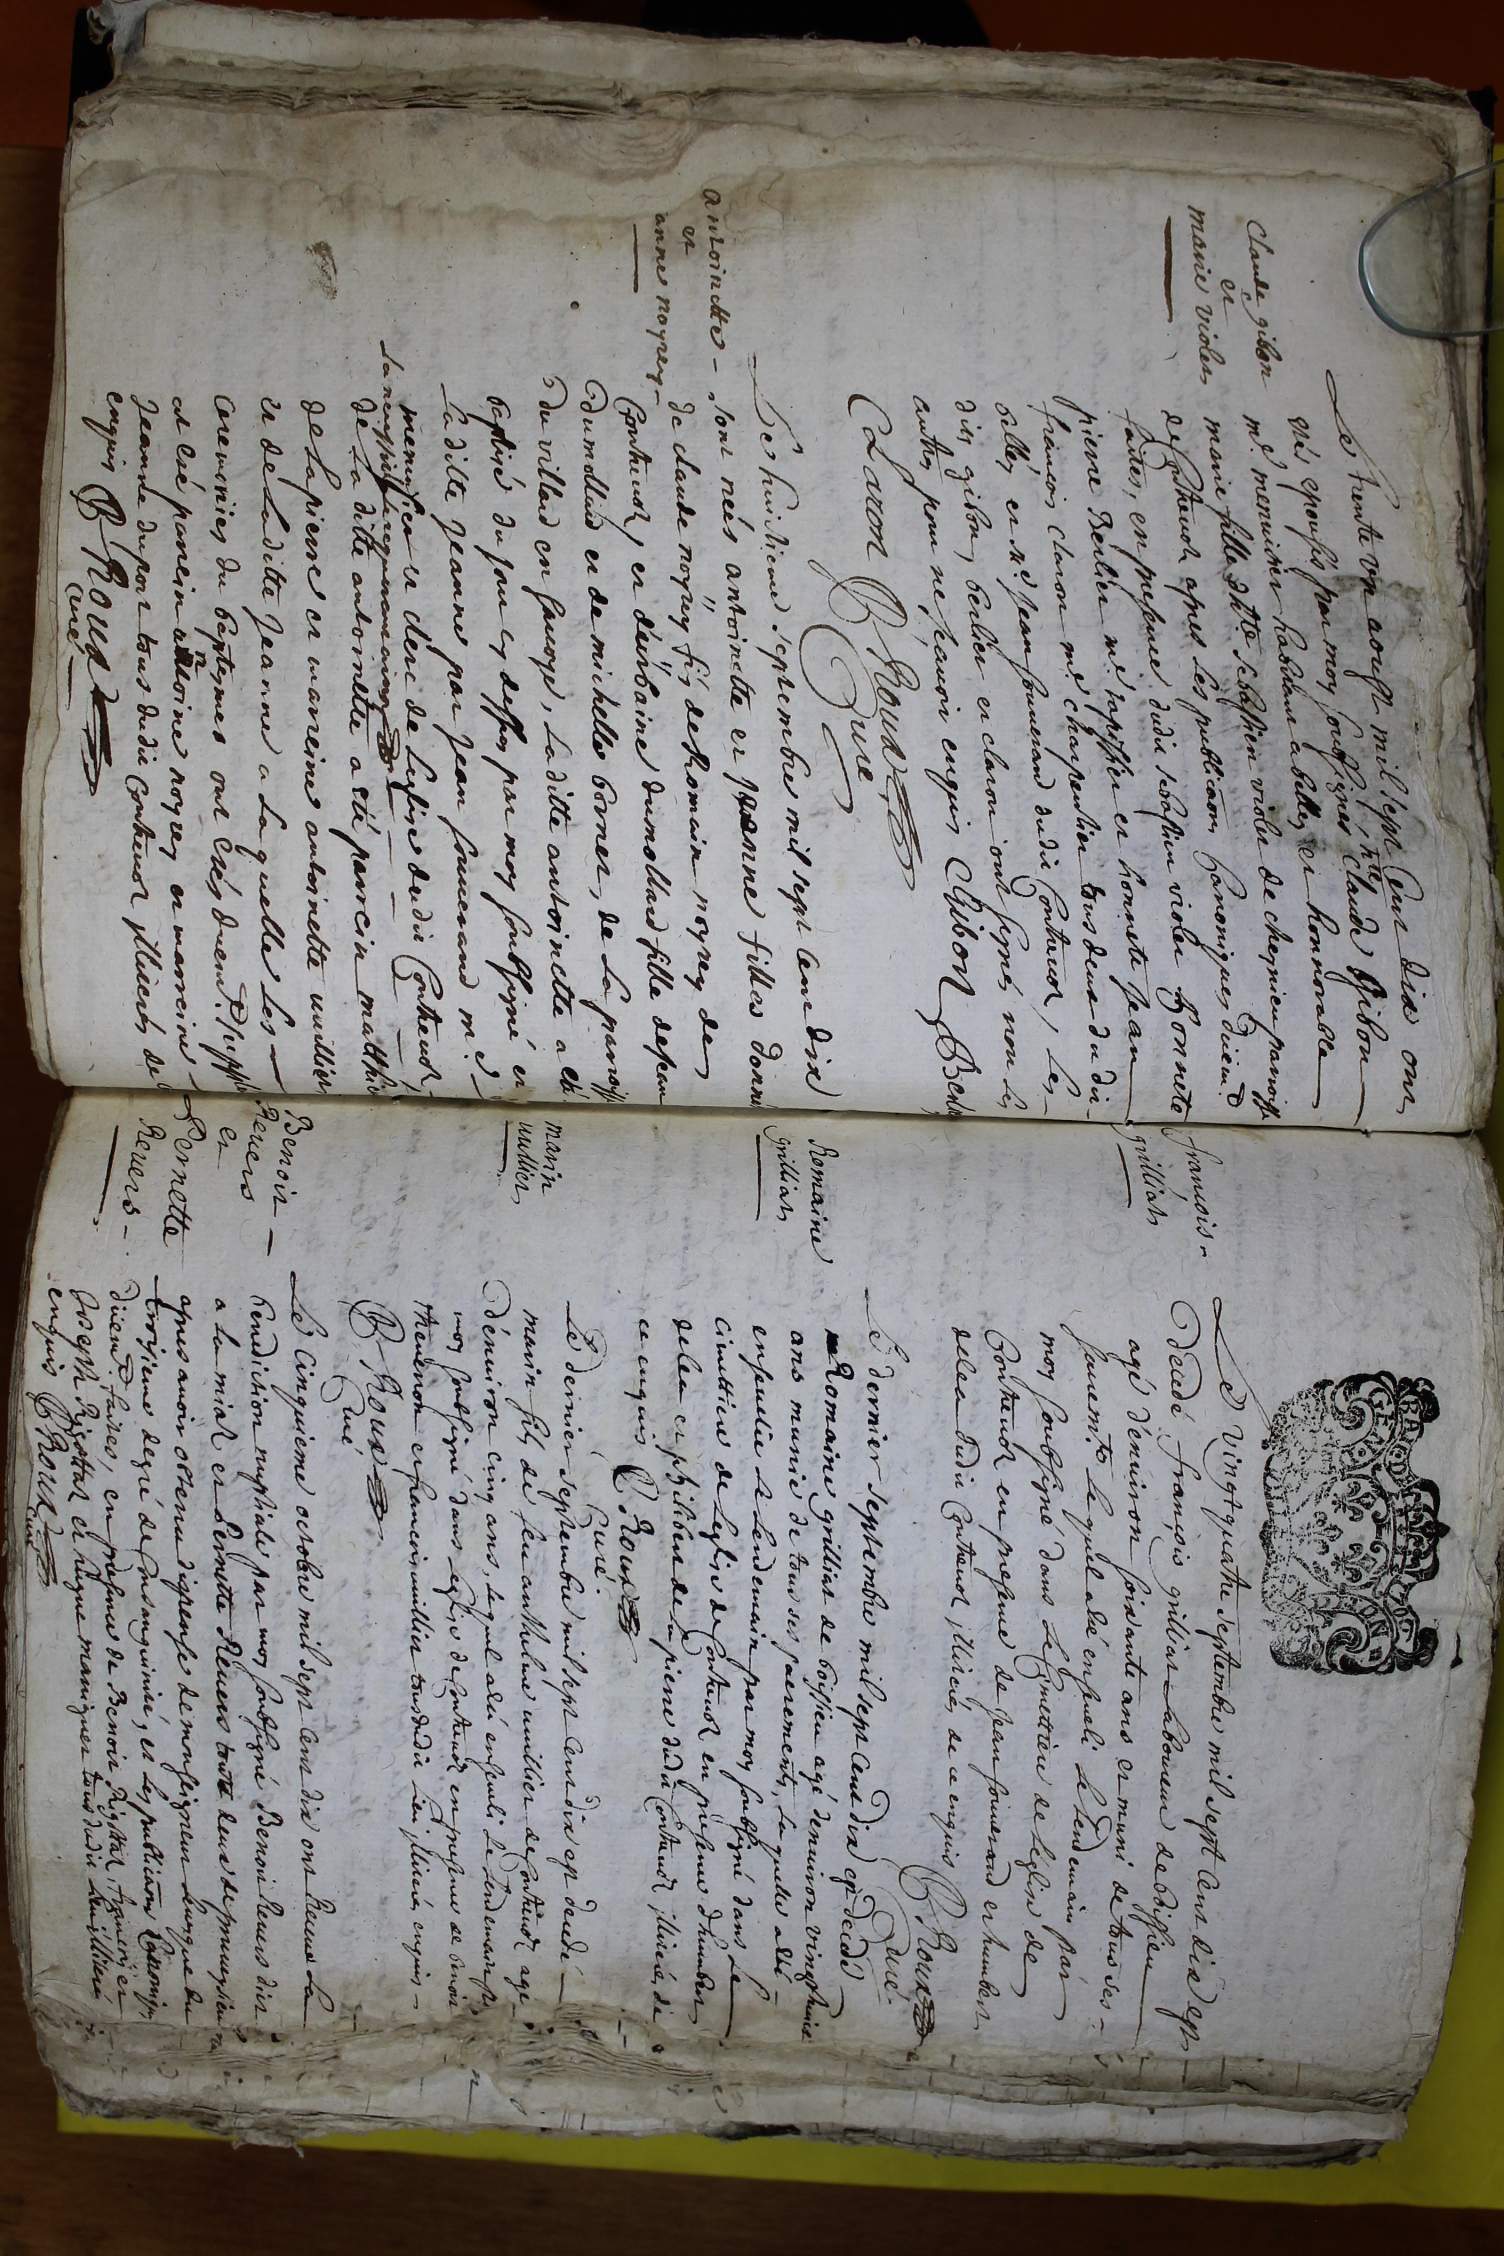 Claude gibon
et
marie violet
Le trente un aoust mil sept Cent dix ont
estés epousés par moy soubsignés hble Claude Gibon
me. menuisier habitant a belley et honnorable
marie fille dhble sebastien violet de cheynieu paroisse
de Contrevoz apres les publicaons canoniques duem.t
faites, en presence dudit sebastien violet honnete
pierre Berlier me tapissier et honnete jean
francois claron me charpentier tous deux du dit
belley et me jean fornerand dudit Contrevoz, les
dits gibon, berlier et claron ont signés non les
autres pour ne sçavoir enquis C Gibon Berlier
Claron B Roux
Curé
Antoinette
et
anne noyrey
Le huictieme septembre mil sept Cent dix
sont neés antoinette et jeanne filles donné
de claude noyrey fils de Romain noyrey de
Contrevoz, et d'urbaine dumollard fille de feu
dumollard et de michelle bornet, de la paroisse
du villard en Savoye, la ditte antoinette a eté
baptisé du jour cy dessus par moy soubsigné et
la ditte jeanne par jean fornerand me
menuisier et clerc de leglise dudit Contrevoz
de la ditte antoinette a eté parrein matthieu
de la pierre et marreine antoinette vuillier
et de la ditte jeanne a laquelle les
ceremonies du baptesme ont estés duem.t supplé
at esté parrein antoine noyrey et marreine
jeanne dupont tous dudit Contrevoz illiterés de
enquis B Roux
Curé
françois
grilliat
Le vingt quatre septembre mil sept Cent dix est
decedé françois grilliat laboureur de boissieu
agé d'environ soixante ans et muni de tous ses
sacrem.ts lequel a eté ensepeli le lendemain par
moy soubsigné dans le cimettiere de leglise de
Contrevoz en presence de jean fornerand et humbert
delea dudit Contrevoz illiterés de ce enquis B Roux
Curé
Romaine
grilliat
Le dernier septembre mil sept Cent dix est decedé
Romaine grilliat de boissieu agé d'environ vingthuict
ans munie de tous ses sacrements, laquelle a eté
ensepelie le lendemain par moy soubsigné dans le
cimettiere de leglise de Contrevoz en presence d'humbert
delea et philibert de la pierre dudit Contrevoz illiterés de
ce enquis B Roux
Curé
marin
vuillier
Le dernier septembre mil sept Cent dix est decedé
marin fils de feu anthelme vuillier de Contrevoz agé
d'environ cinq ans, lequel a eté ensepeli le lendemain par
moy soubsigné dans leglise de Contrevoz en presence de benoit
thevenon et francois vuillier tous dudit lieu illiterés enquis
B Roux
Curé
Benoit
Revers
et
Pernette
Revers
Le cinquieme octobre mil sept Cent dix ont Receus la
benediction nuptiale par moy soubsigné Benoit Revers dit
a la miat et Pernette Revers tous deux de prugieu
apres avoir obtenu dispense de monseigneur levesque du
troisieme degré de Consanguinité, et les publicaons Canoniq
duem.t faittes, en presence de Benoit Rigottat, et
Joseph Rigottat et hugue maniguet tous dudit lieu illiterés
enquis B Roux
Curé